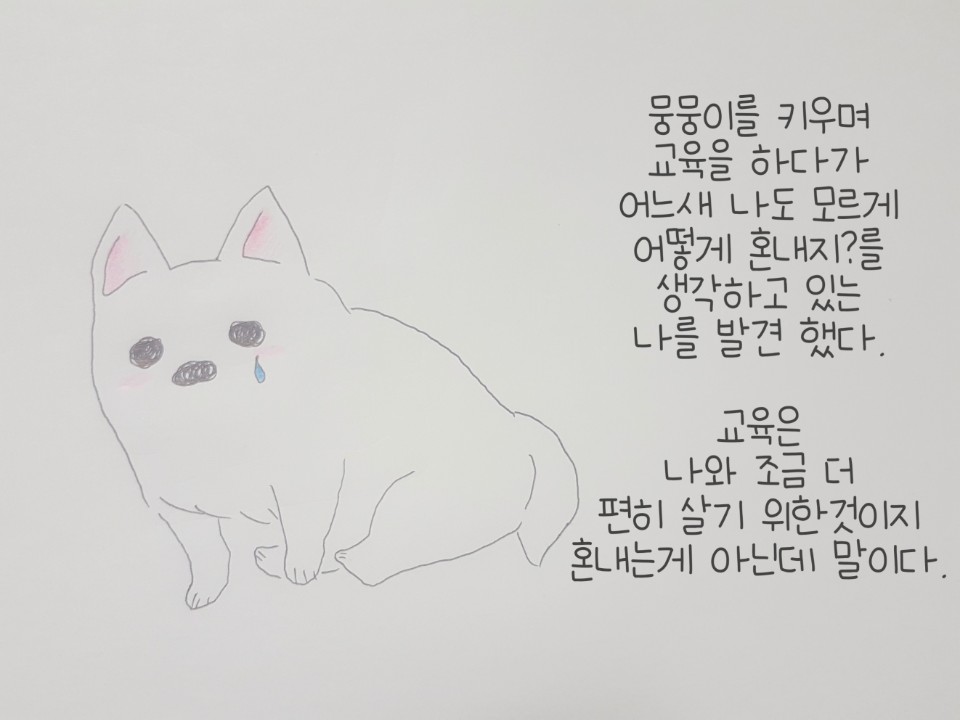 뭉뭉이를 키우며
교육을 하다가
어느새 나도 모르게
어떻게 혼내지?를
생각하고 있는
나를 발견 했다.
교육은
나와 조금 더
편히 살기 위한것이지
혼내는게 아닌데 말이다.